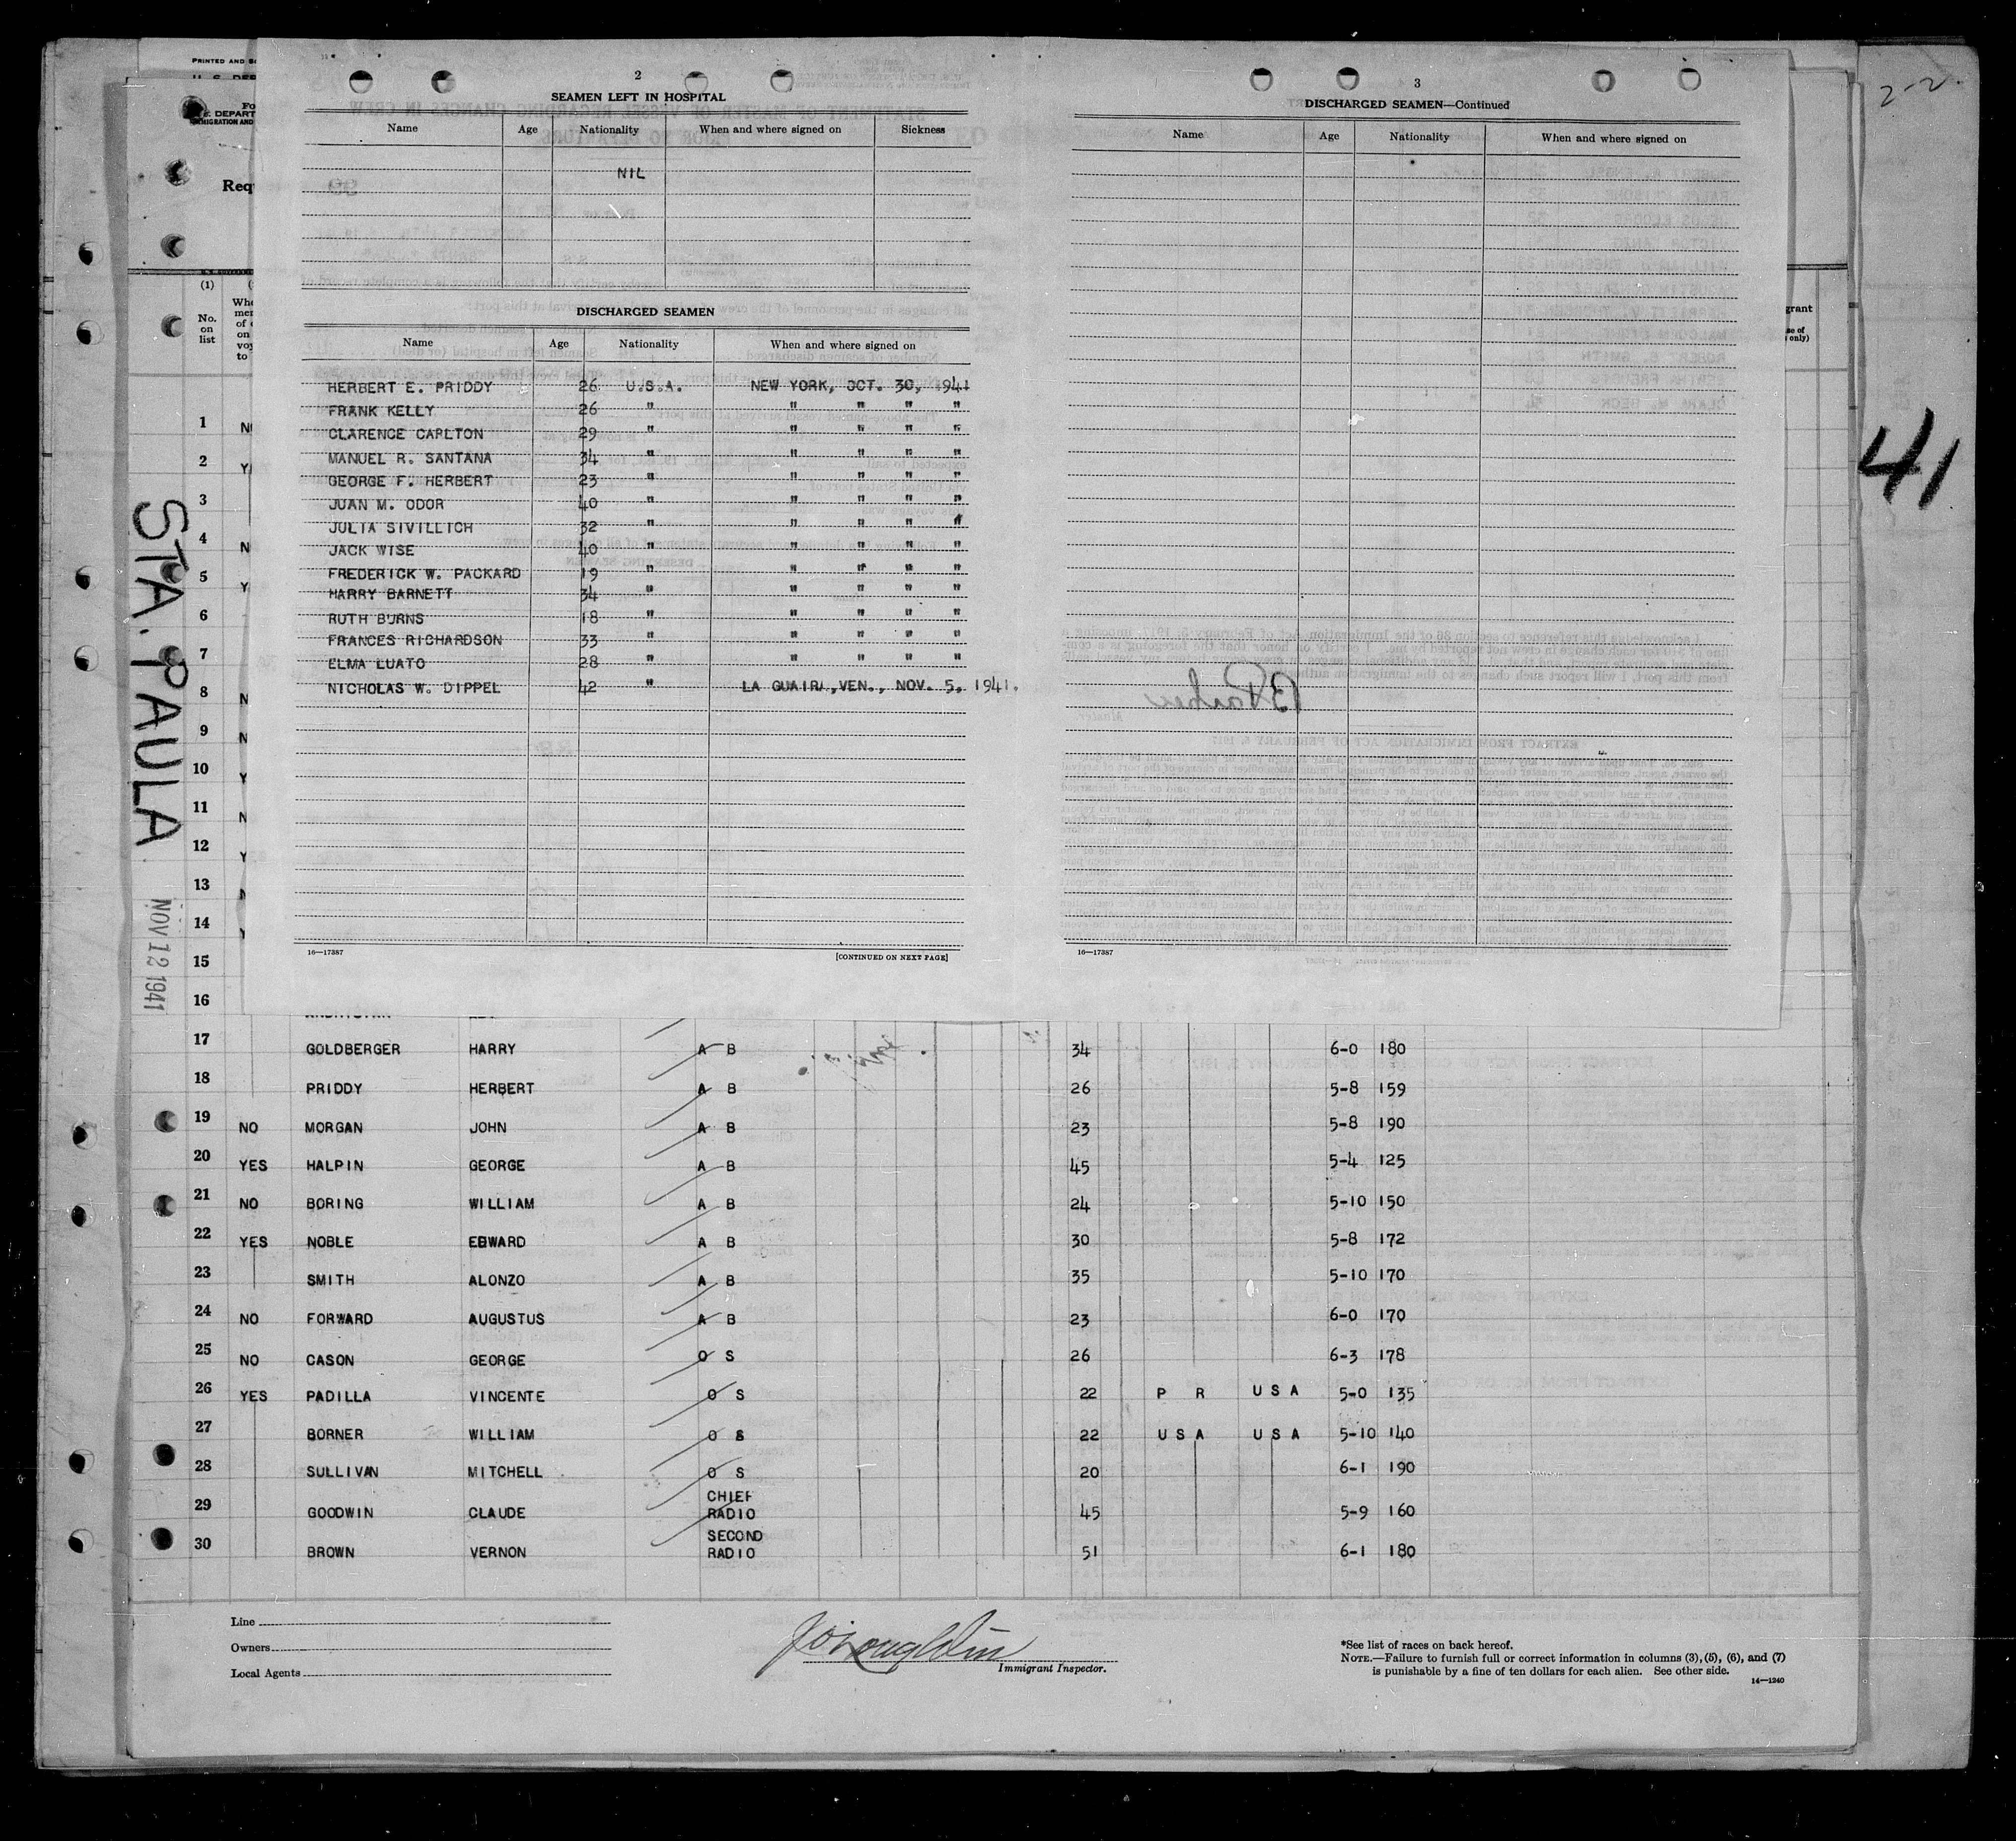 PRINTED AND
2-2
41
STA. PAULA
NOV 12 1941
2
SEAMEN LEFT IN HOSPITAL
Name Age Nationality When and where signed on Sickness
NIL
DISCHARGED SEAMEN
Name Age Nationality When and where signed on
HERBERT E. PRIDDY 26 U.S.A. NEW YORK, OCT. 30, 1941
FRANK KELLY 26 " " " " "
CLARENCE CARLTON 29 " " " " "
MANUEL R. SANTANA 34 " " " " "
GEORGE F. HERBERT 23 " " " " "
JUAN M. ODOR 40 " " " " "
JULIA SIVILLICH 32 " " " " "
JACK WISE 40 " " " " "
FREDERICK W. PACKARD 19 " " " " "
HARRY BARNETT 34 " " " " "
RUTH BURNS 18 " " " " "
FRANCES RICHARDSON 33 " " " " "
ELMA LUATO 28 " " " " "
NICHOLAS W. DIPPEL 42 " LA GUAIRA, VEN., NOV. 5, 1941.
16—17387 [CONTINUED ON NEXT PAGE]
3
DISCHARGED SEAMEN—Continued
Name Age Nationality When and where signed on
16—17387
(1)
No.
on
list
1
2
3
4
5
6
7
8
9
10
11
12
13
14
15
16
17 GOLDBERGER HARRY A B 34 6-0 180
18 PRIDDY HERBERT A B 26 5-8 159
19 NO MORGAN JOHN A B 23 5-8 190
20 YES HALPIN GEORGE A B 45 5-4 125
21 NO BORING WILLIAM A B 24 5-10 150
22 YES NOBLE EDWARD A B 30 5-8 172
23 SMITH ALONZO A B 35 5-10 170
24 NO FORWARD AUGUSTUS A B 23 6-0 170
25 NO CASON GEORGE O S 26 6-3 178
26 YES PADILLA VINCENTE O S 22 P R U S A 5-0 135
27 BORNER WILLIAM O S 22 U S A U S A 5-10 140
28 SULLIVAN MITCHELL O S 20 6-1 190
CHIEF
29 GOODWIN CLAUDE RADIO 45 5-9 160
SECOND
30 BROWN VERNON RADIO 51 6-1 180
Line
Owners
Local Agents
Immigrant Inspector.
*See list of races on back hereof.
NOTE.—Failure to furnish full or correct information in columns (3), (5), (6), and (7)
is punishable by a fine of ten dollars for each alien. See other side.
14—1240